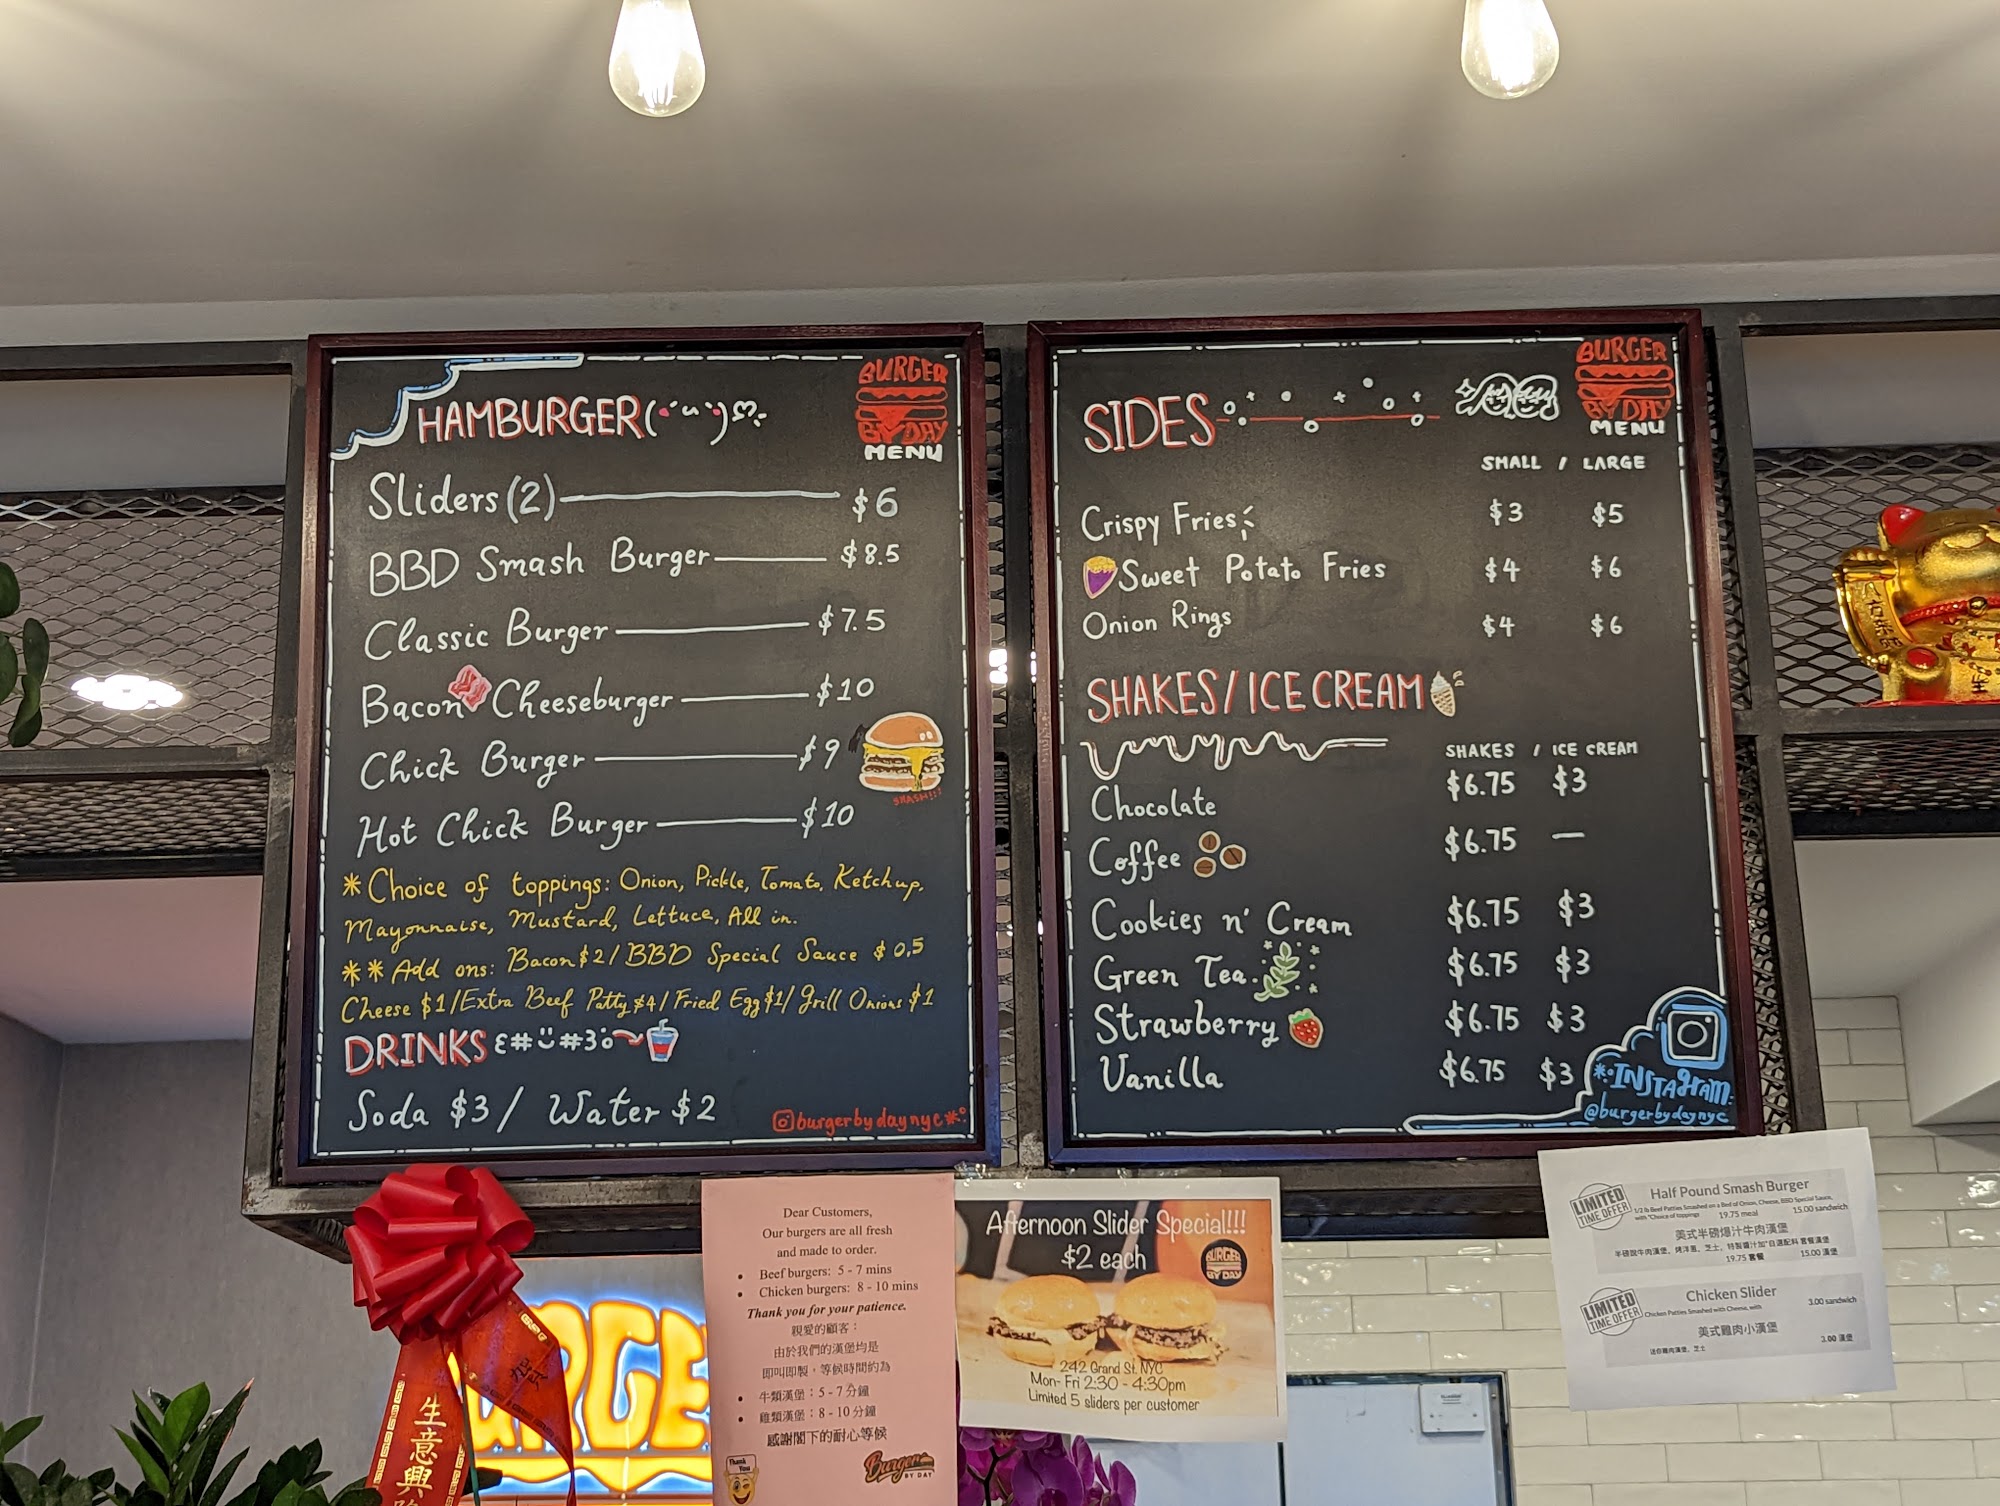 HAMBURGER
BURGER
BY DAY
MENU
Sliders (2) $6
BBD Smash Burger $8.5
Classic Burger $7.5
Bacon Cheeseburger $10
Chick Burger $9
Hot Chick Burger $10
SMASH!!!
*Choice of toppings: Onion, Pickle, Tomato, Ketchup,
Mayonnaise, Mustard, Lettuce, All in.
**Add ons: Bacon $2 / BBD Special Sauce $0.5
Cheese $1/Extra Beef Patty $4/Fried Egg $1/Grill Onions $1
DRINKS
Soda $3 / Water $2
burgerbydaynyc
SIDES
BURGER
BY DAY
MENU
SMALL / LARGE
Crispy Fries $3 $5
Sweet Potato Fries $4 $6
Onion Rings $4 $6
SHAKES/ICE CREAM
SHAKES / ICE CREAM
Chocolate $6.75 $3
Coffee $6.75 —
Cookies n' Cream $6.75 $3
Green Tea $6.75 $3
Strawberry $6.75 $3
Vanilla $6.75 $3
INSTAGRAM:
@burgerbydaynyc
Dear Customers,
Our burgers are all fresh
and made to order.
• Beef burgers: 5 - 7 mins
• Chicken burgers: 8 - 10 mins
Thank you for your patience.
親愛的顧客：
由於我們的漢堡均是
即叫即製，等候時間約為
• 牛類漢堡：5 - 7 分鐘
• 雞類漢堡：8 - 10 分鐘
感謝閣下的耐心等候
Thank You
Burger
BY DAY
Afternoon Slider Special!!!
$2 each
BURGER
BY DAY
242 Grand St. NYC
Mon- Fri 2:30 - 4:30pm
Limited 5 sliders per customer
LIMITED
TIME OFFER
Half Pound Smash Burger
1/2 lb Beef Patties Smashed on a Bed of Onion, Cheese, BBD Special Sauce,
with "Choice of toppings 19.75 meal 15.00 sandwich
美式半磅爆汁牛肉漢堡
19.75 套餐 15.00 漢堡
LIMITED
TIME OFFER
Chicken Slider
Chicken Patties Smashed with Cheese, with 3.00 sandwich
美式雞肉小漢堡
迷你雞肉漢堡，芝士 3.00 漢堡
生意興
賀
URGE